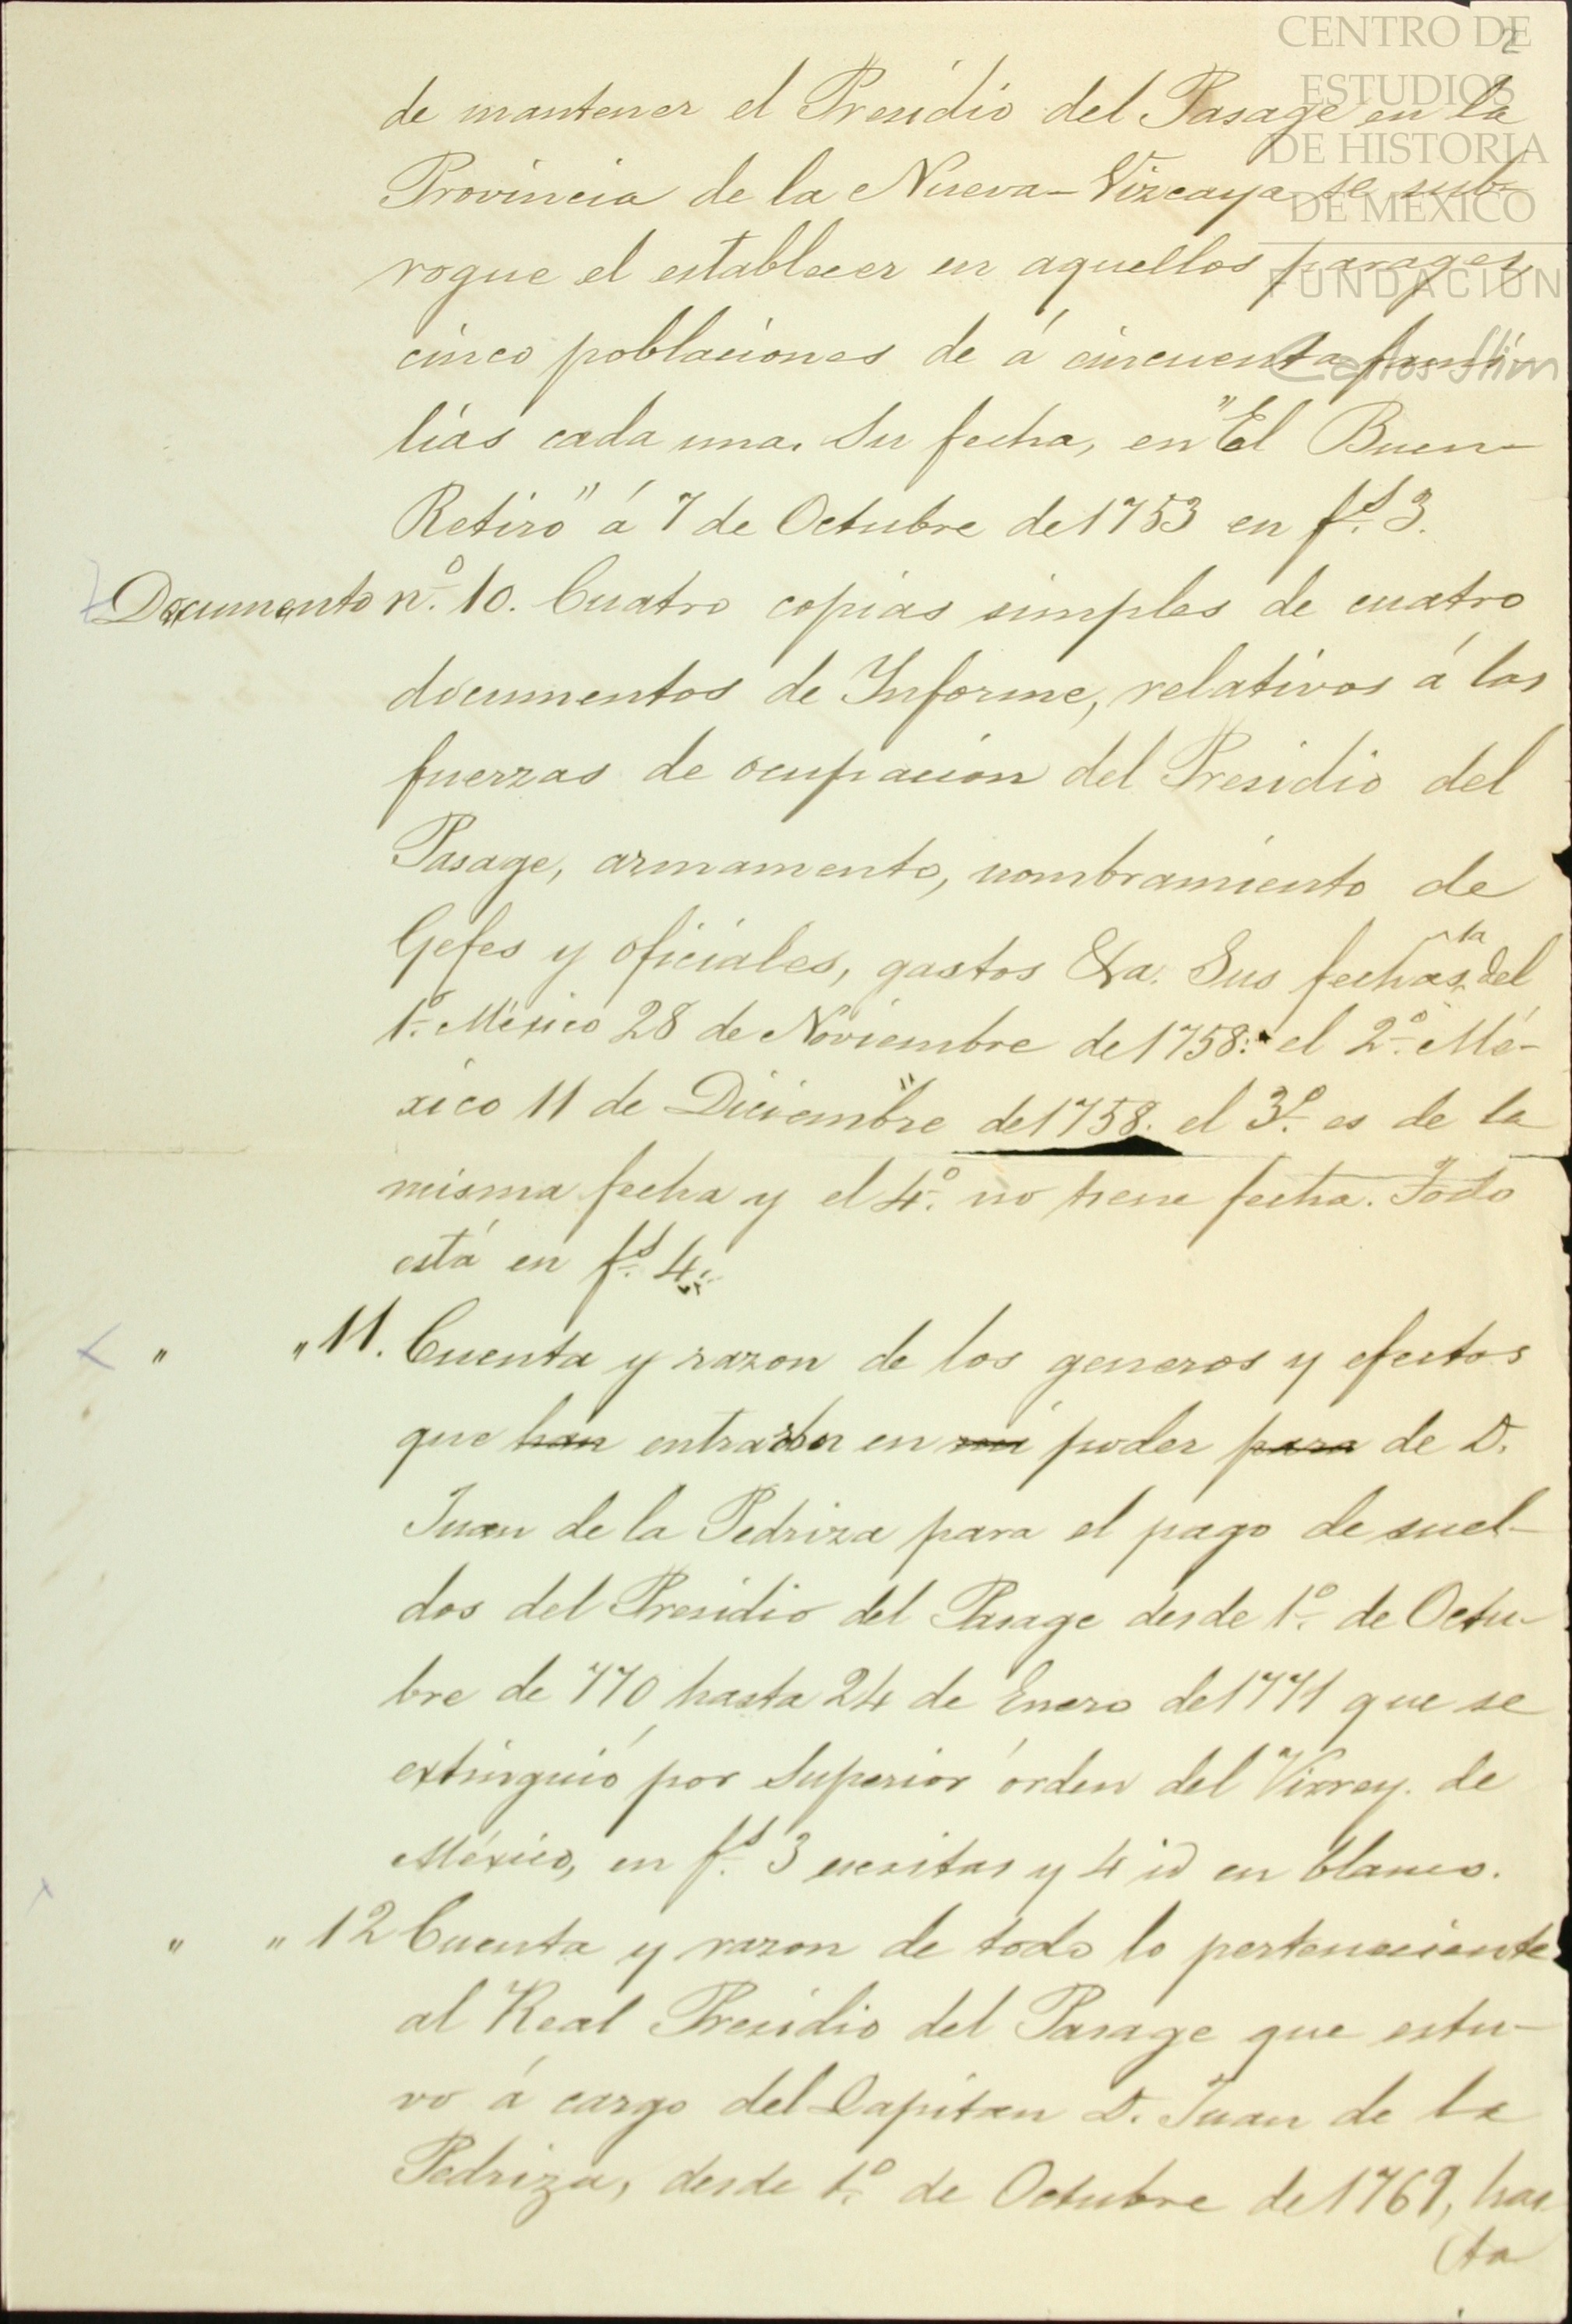 CENTRO DE
ESTUDIOS
DE HISTORIA
DE MÉXICO
FUNDACIÓN
Carlos Slim
2
de mantener el Presidio del Pasage en la
Provincia de la Nueva-Vizcaya se sub-
rogue el establecer en aquellos parages
cinco poblaciones de á cincuenta fami-
lias cada una. Su fecha, en "El Buen-
Retiro" á 7 de Octubre de 1753 en f.s 3.
Documento n.o 10. Cuatro copias simples de cuatro
documentos de Informe, relativos á las
fuerzas de ocupacion del Presidio del
Pasage, armamento, nombramiento de
Gefes y oficiales, gastos &a. Sus fechas, la del
1.o México 28 de Noviembre de 1758: el 2.o Mé-
xico 11 de Diciembre de 1758. el 3.o es de la
misma fecha y el 4.o no tiene fecha. Todo
está en f.s 4.
" " 11. Cuenta y razon de los generos y efectos
que han entraron en mi poder para de D.
Juan de la Pedriza para el pago de suel-
dos del Presidio del Pasage desde 1.o de Octu-
bre de 770 hasta 24 de Enero de 1771 que se
extinguió por Superior órden del Virrey. de
México, en f.s 3 escritas y 4 id en blanco.
" " 12 Cuenta y razon de todo lo perteneciente
al Real Presidio del Pasage que estu-
vo á cargo del Capitan D. Juan de la
Pedriza, desde 1.o de Octubre de 1769, has-
(ta